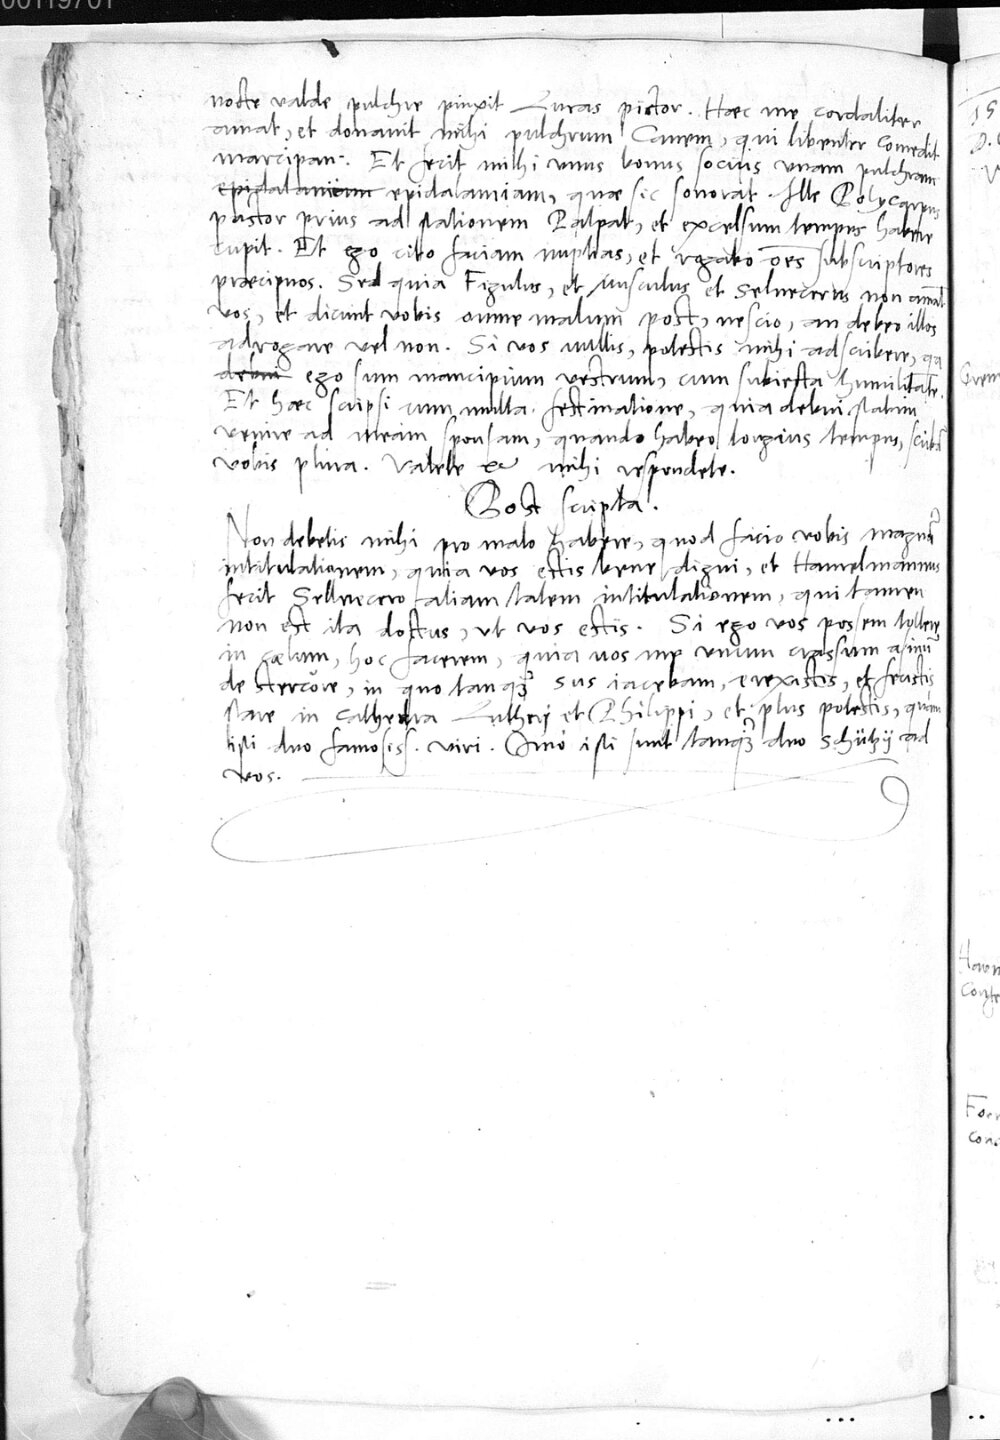 00119701
nocte valde pulchre pinxit Lucas pictor. Haec me cordaliter
amat, et donavit mihi pulchrum Canem, qui libenter comedit
marcipan. Et fecit mihi unus bonus socius unam pulchram
epidalamiam, quae sic sonorat. Ille Polycarpus
pastor prius ad stationem Palpat, et excelsum tempus habere
cupit. Et ego cito faciam nuptias, et rogabo oes subscriptores
praecipuos. Sed quia Figulus, et Musculus et Selneccerus non amāt
vos, et dicunt vobis omne malum post, nescio, an debeo illos
adrogare vel non. Si vos vultis, potestis mihi adscribere, qa
ego sum mancipium vestrum, cum subiecta humilitate.
Et haec scripsi cum multa festinatione, quia debui statim
venire ad meam sponsam, quando habeo longius tempus, scribā
vobis plura. Valete et mihi respondete.
Post scripta.
Non debetis mihi pro malo habere, quod facio vobis magnā
intitulationem, quia vos estis bene digni, et Hamelmannus
fecit Sellnecero taliam talem intitulationem, qui tamen
non est ita doctus, ut vos estis. Si ego vos possem tollere
in caelum, hoc facerem, quia vos me unum crassum asinū
de stercore, in quo tanq̄ sus iacebam, erexistis, et fecistis
stare in cathedra Lutheri et Philippi, et plus potestis, quam
isti duo famosiss. viri. Omō isti sunt tanq̄ duo schützij ad
vos.